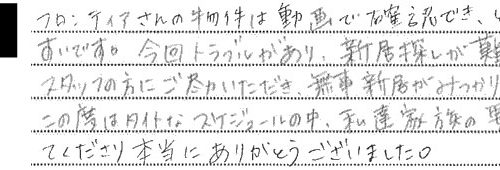 フロンティアさんの物件は動画で確認でき、
すいです。今回トラブルがあり、新居探しが難
スタッフの方にご尽力いただき、無事新居がみつかり
この度はタイトなスケジュールの中、私達家族の要
てくださり本当にありがとうございました。